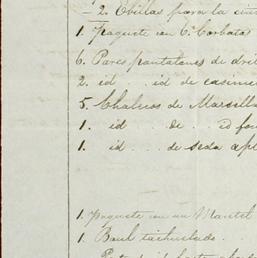 2. Obillas para la
1. Paquete con 6 Corbatas
6. Pares pantalones de dril
2. id ... id de casimi
5. Chalecos de Marsilla
1. id ... de ... id
1. id ... de seda
1. Paquete con un Mantel
1. Baul tachuelado